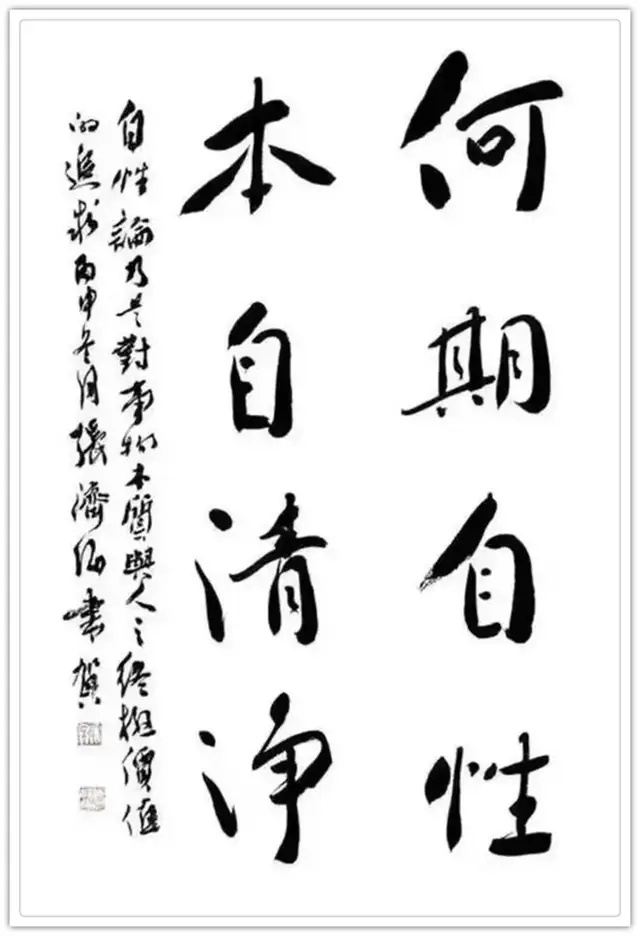 何期自性
本自清净
自性論乃是對事物本質與人之終極價值
的追求丙申冬月張濟海書賀